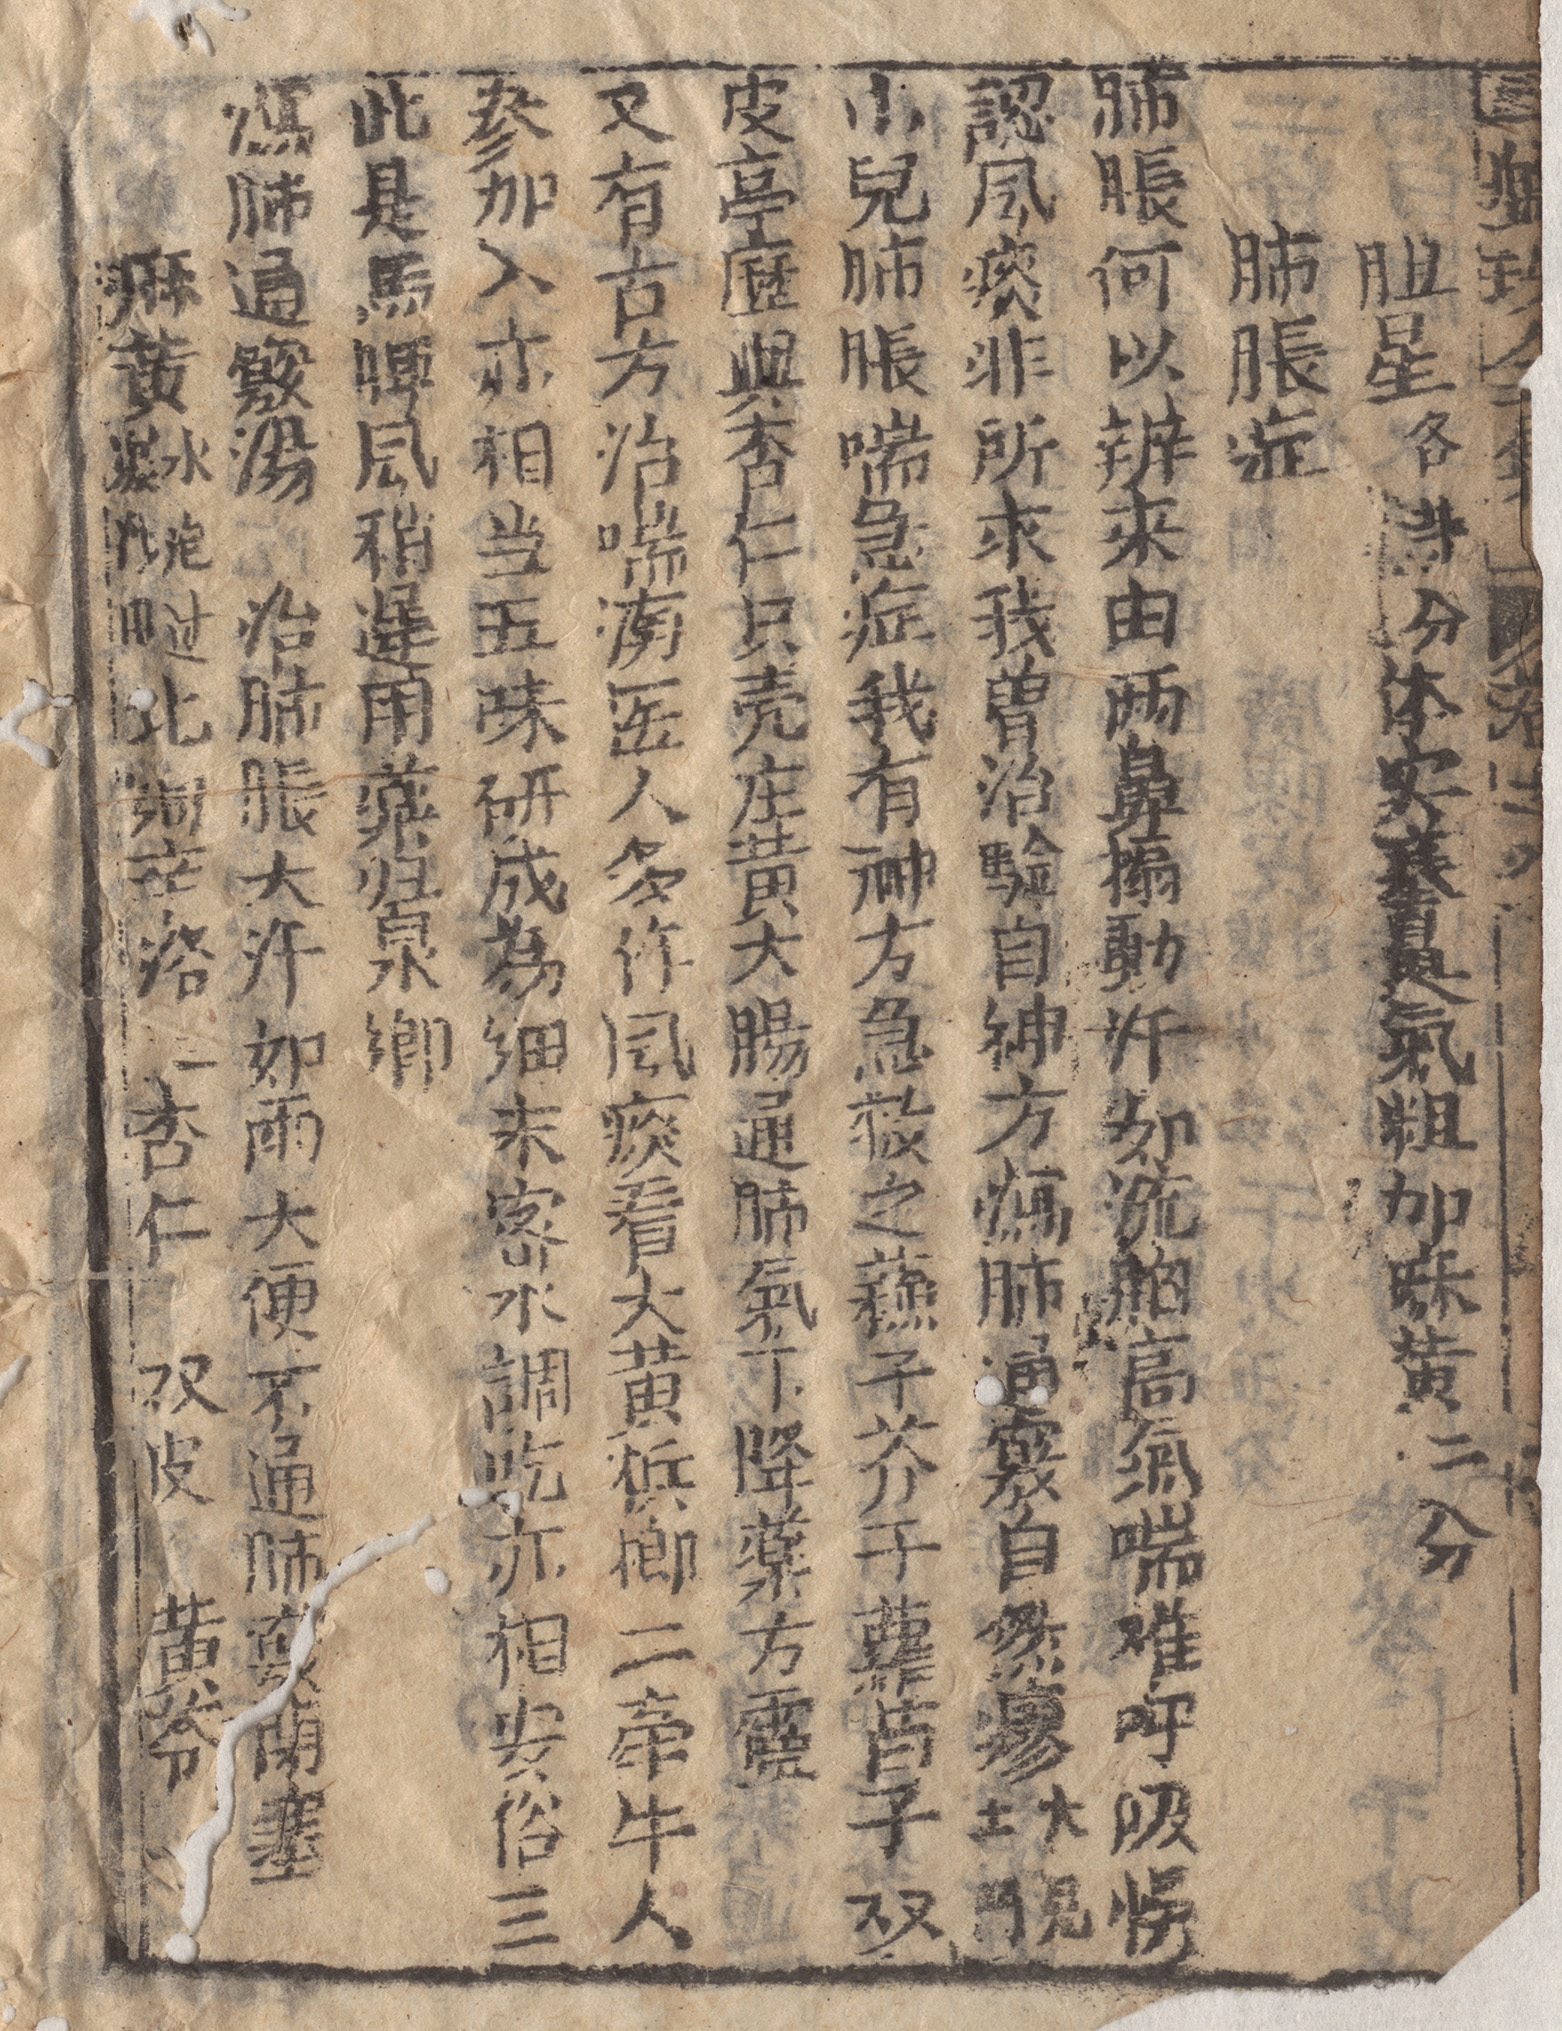 胆星各一錢半分体实蓋是氣粗加麻黄二分
肺脹症
肺脹何以辨来由兩鼻搧動汗如洗胸高氣喘难呼吸悞
認风痰非所求我曾治驗自神方瀉肺通竅自然瘳
小兒肺脹喘急症我有神方急救之蘓子芥子蘿白子双
皮葶歷與杏仁只壳庄黄大腸通肺氣下降藥方靈
又有古方治喘南医人多作风痰看大黄梹榔二牽牛人
參加入亦相当五味研成為细末密水調吃亦相安俗三
此是馬脾风稍遲用藥归泉鄉
瀉肺通竅湯 治肺脹大汗如雨大便不通肺竅閉塞
麻黄水泡过北細辛 杏仁 双皮 黄芩